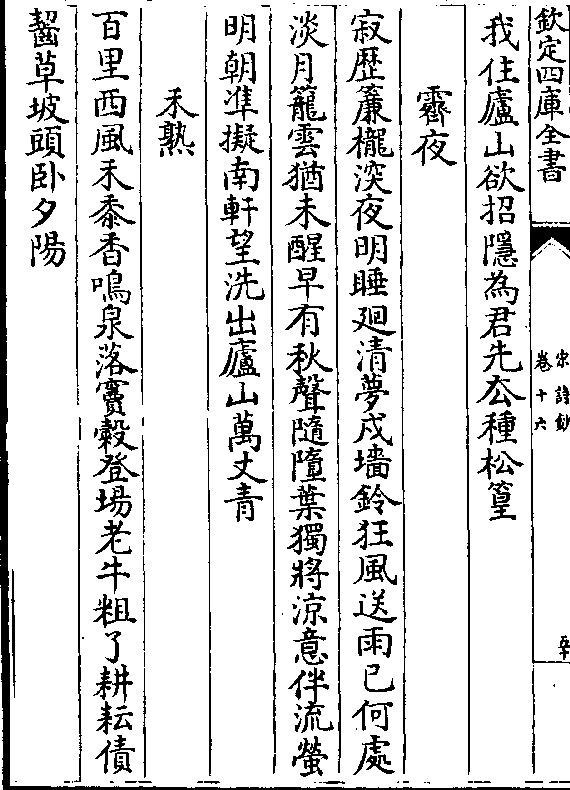 欽定四庫全書
宋詩鈔
卷十六
我住廬山欲招隱為君先厺種松篁
霽夜
寂歴簾櫳湥夜明睡廻清夢戍墻鈴狂風送雨已何處
淡月籠雲猶未醒早有秋聲隨墮葉獨將涼意伴流螢
明朝凖擬南軒望洗出廬山萬丈青
禾熟
百里西風禾黍香鳴泉落竇糓登場老牛粗了耕耘債
齧草坡頭卧夕陽